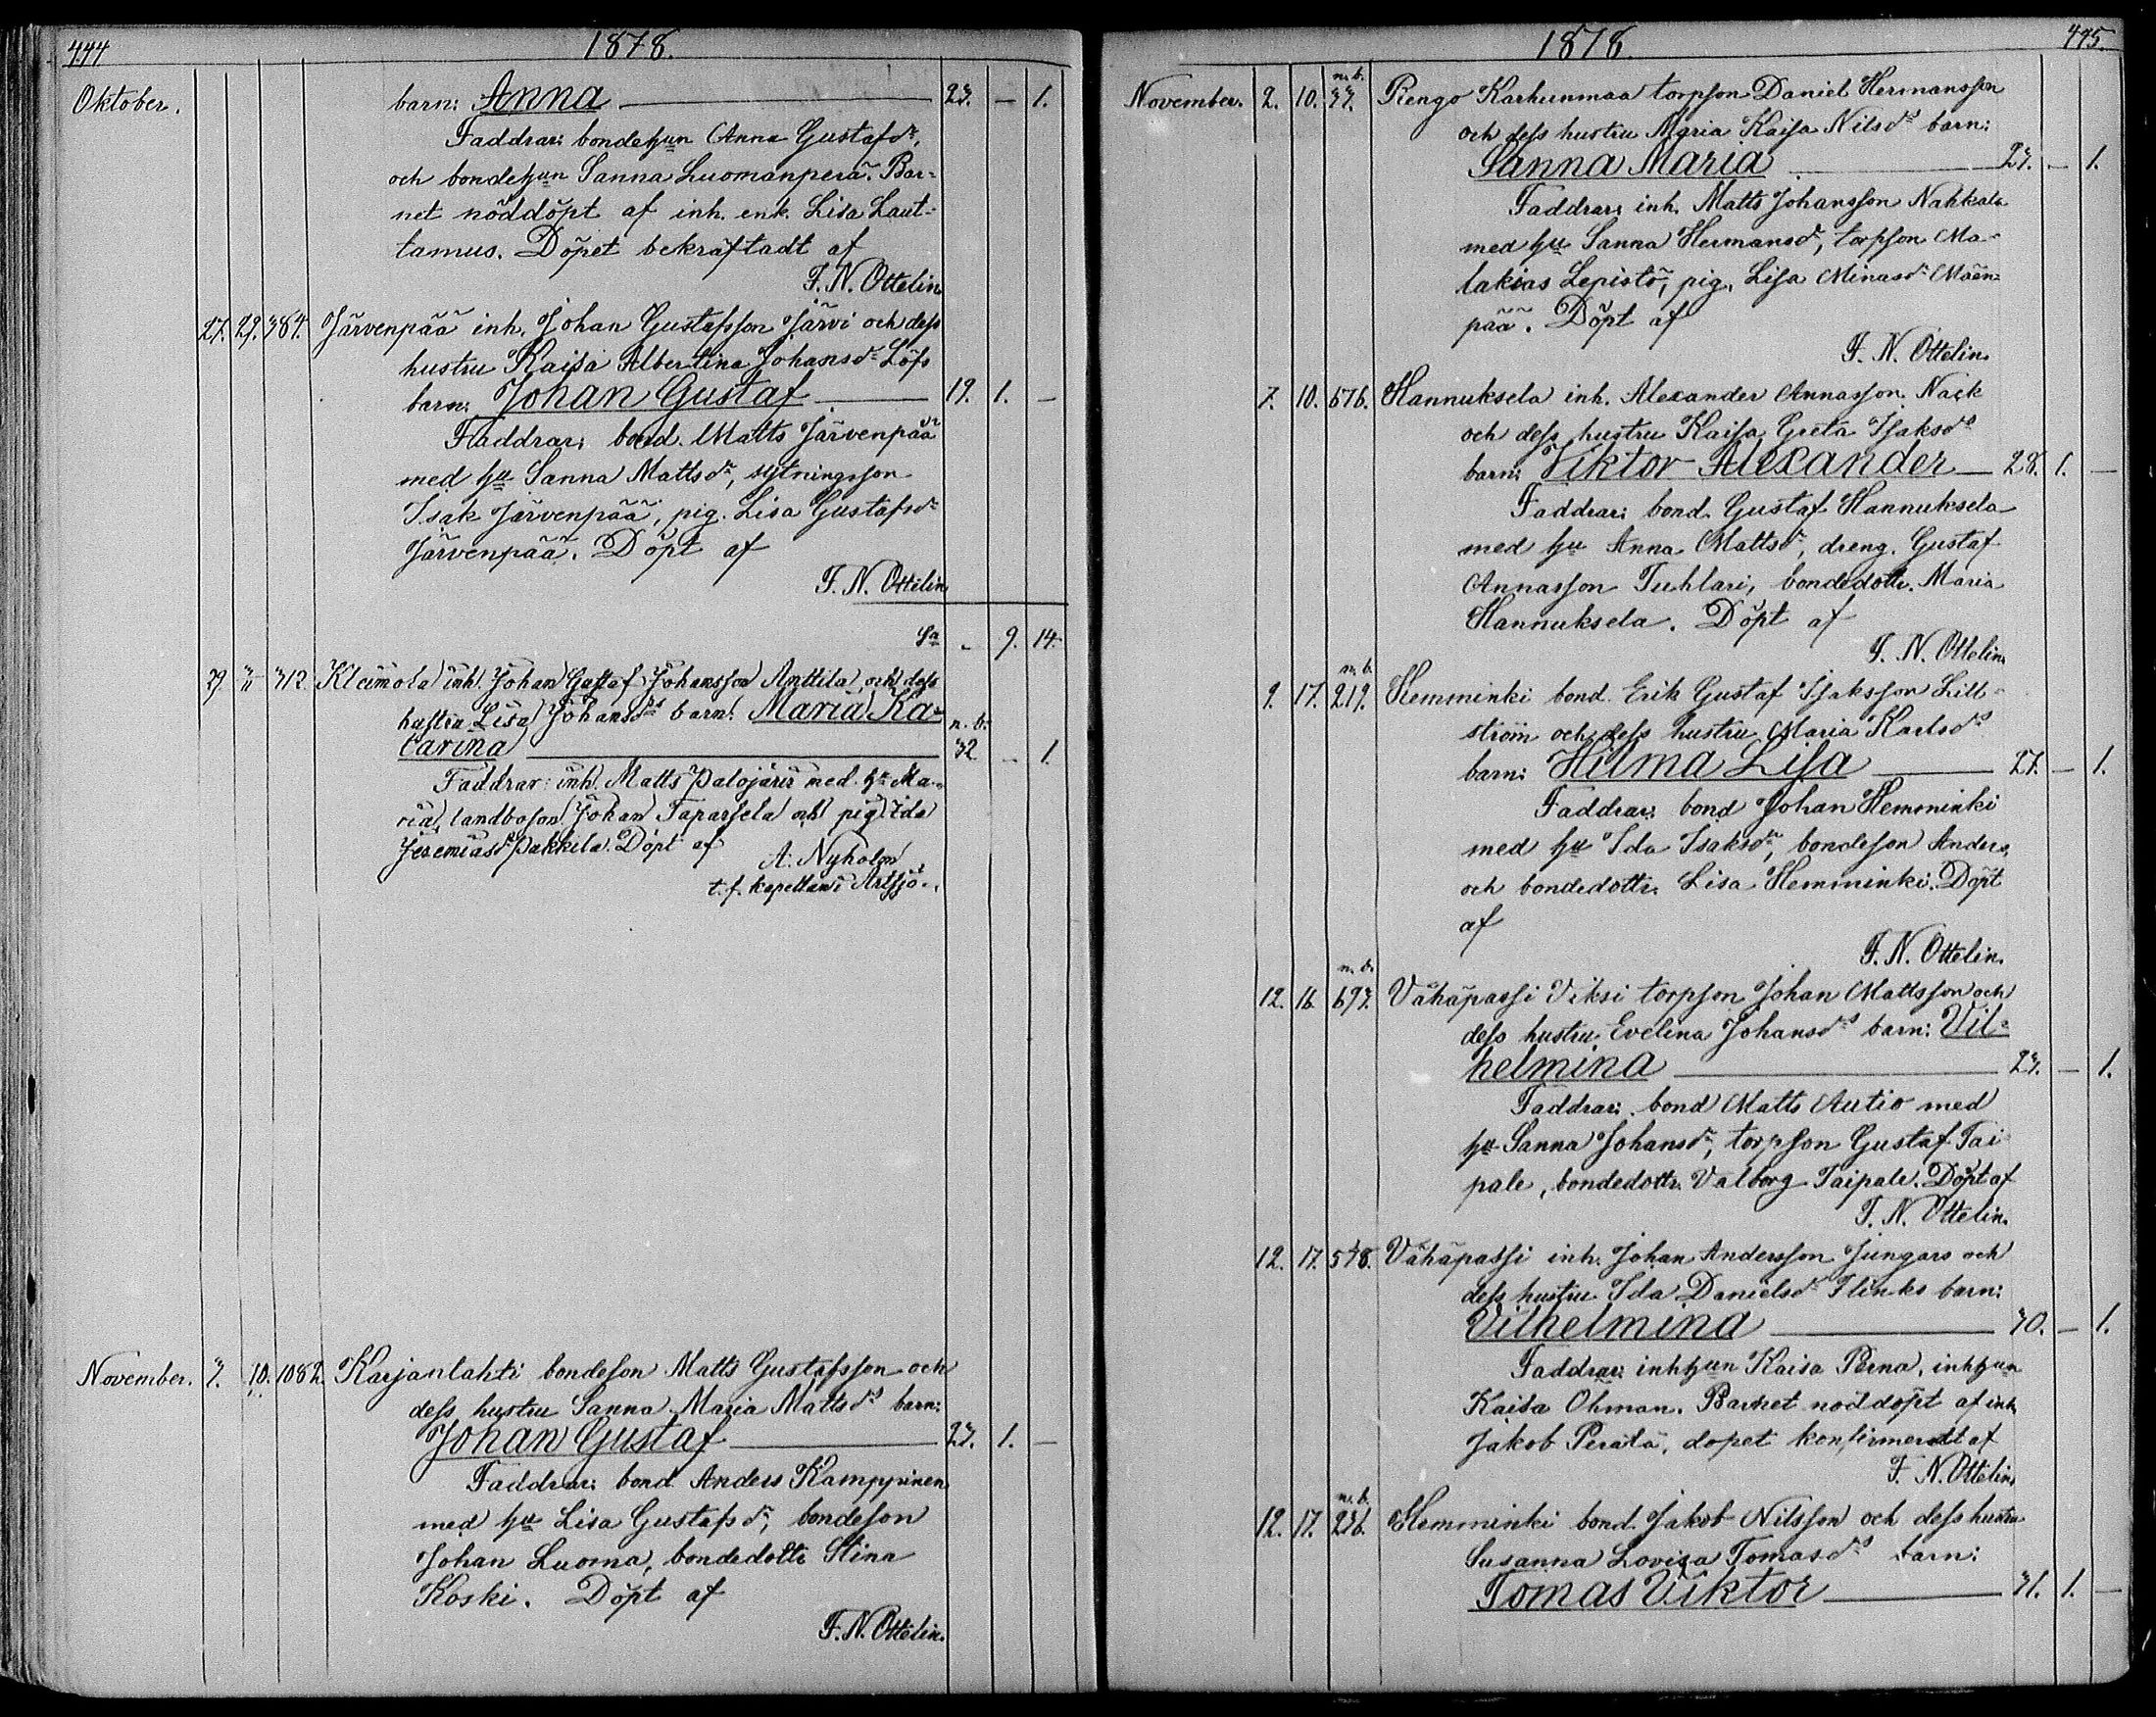 444
1878.
Oktober. barn: Anna — 23. — 1.
Faddrar: bondehun Anna Gustafsdr,
och bondehun Sanna Luomanperä. Bar-
net nöddöpt af inh. enk. Lisa Laut-
tamus. Döpet bekräftadt af
F. N. Ottelin.
27. 29. 384. Järvenpää inh. Johan Gustafsson Järvi och dess
hustru Kaisa Albertina Johansdr Löfs
barn: Johan Gustaf — 19. 1. —
Faddrar: bond. Matts Järvenpää
med hu Sanna Mattsdr, sytningsson
Isak Järvenpää, pig. Lisa Gustafsdr
Järvenpää. Döpt af
F. N. Ottelin
Sa - 9. 14.
29 3/11 312. Kleimola inh. Johan Gustaf Johansson Anttila och dess
hustru Lisa Johansds barn: Maria Ka- n. b.
tarina — 32 — 1.
Faddrar: inh. Matts Palojärvi med hu Ma-
ria, landboson Johan Taparsela och pig. Ida
Jeremiasdr Pakkila. Döpt af
A. Nyholm
t. f. kapellan i Artsjö.
November. 3. 10. 1082. Karjanlahti bondeson Matts Gustafsson och
dess hustru Sanna Maria Mattsds barn:
Johan Gustaf — 23. 1. —
Faddrar: bond. Anders Kamppinen
med hu Lisa Gustafsdr, bondeson
Johan Luoma, bondedottr Stina
Koski. Döpt af
F. N. Ottelin.
445.
1878.
n. b.
November. 2. 10. 33. Rengo Karhunmaa torpson Daniel Hermansson
och dess hustru Maria Kaisa Nilsds barn:
Sanna Maria — 23. — 1.
Faddrar: inh. Matts Johansson Nahkala
med hu Sanna Hermansdr, torpson Ma-
lakias Lepistö, pig. Lisa Minasdr Mäen-
pää. Döpt af
F. N. Ottelin.
7. 10. 676. Hannuksela inh. Alexander Annasson Nack
och dess hustru Kaisa Greta Isaksds
barn: Viktor Alexander — 28. 1. —
Faddrar: bond. Gustaf Hannuksela
med hu Anna Mattsdr, dreng. Gustaf
Annasson Tuhlari, bondedottr. Maria
Hannuksela. Döpt af
F. N. Ottelin.
n. b.
9. 17. 219. Hemminki bond. Erik Gustaf Isaksson Lill-
ström och dess hustru Maria Karlsds
barn: Hilma Lisa — 27. — 1.
Faddrar: bond Johan Hemminki
med hu Ida Isaksdr, bondeson Anders,
och bondedottr. Lisa Hemminki. Döpt
af
F. N. Ottelin.
n. b.
12. 16. 693. Vähäpassi Viksi torpson Johan Mattsson och
dess hustru Evelina Johansds barn: Vil-
helmina — 23. — 1.
Faddrar: bond Matts Autio med
hu Sanna Johansdr, torpson Gustaf Tai-
pale, bondedottr. Valborg Taipale. Döpt af
F. N. Ottelin.
12. 17. 548. Vähäpassi inh. Johan Andersson Jungars och
dess hustru Ida Danielsdr Flinks barn:
Vilhelmina — 30. — 1.
Faddrar: inhhun Kaisa Perna, inhhun
Kaisa Öhman. Barnet nöddöpt af inh.
Jakob Perälä, döpet konfirmeradt af
F. N. Ottelin.
n. b.
12. 17. 236. Hemminki bond. Jakob Nilsson och dess hustru
Susanna Lovisa Tomasds barn:
Tomas Viktor — 31. 1. —